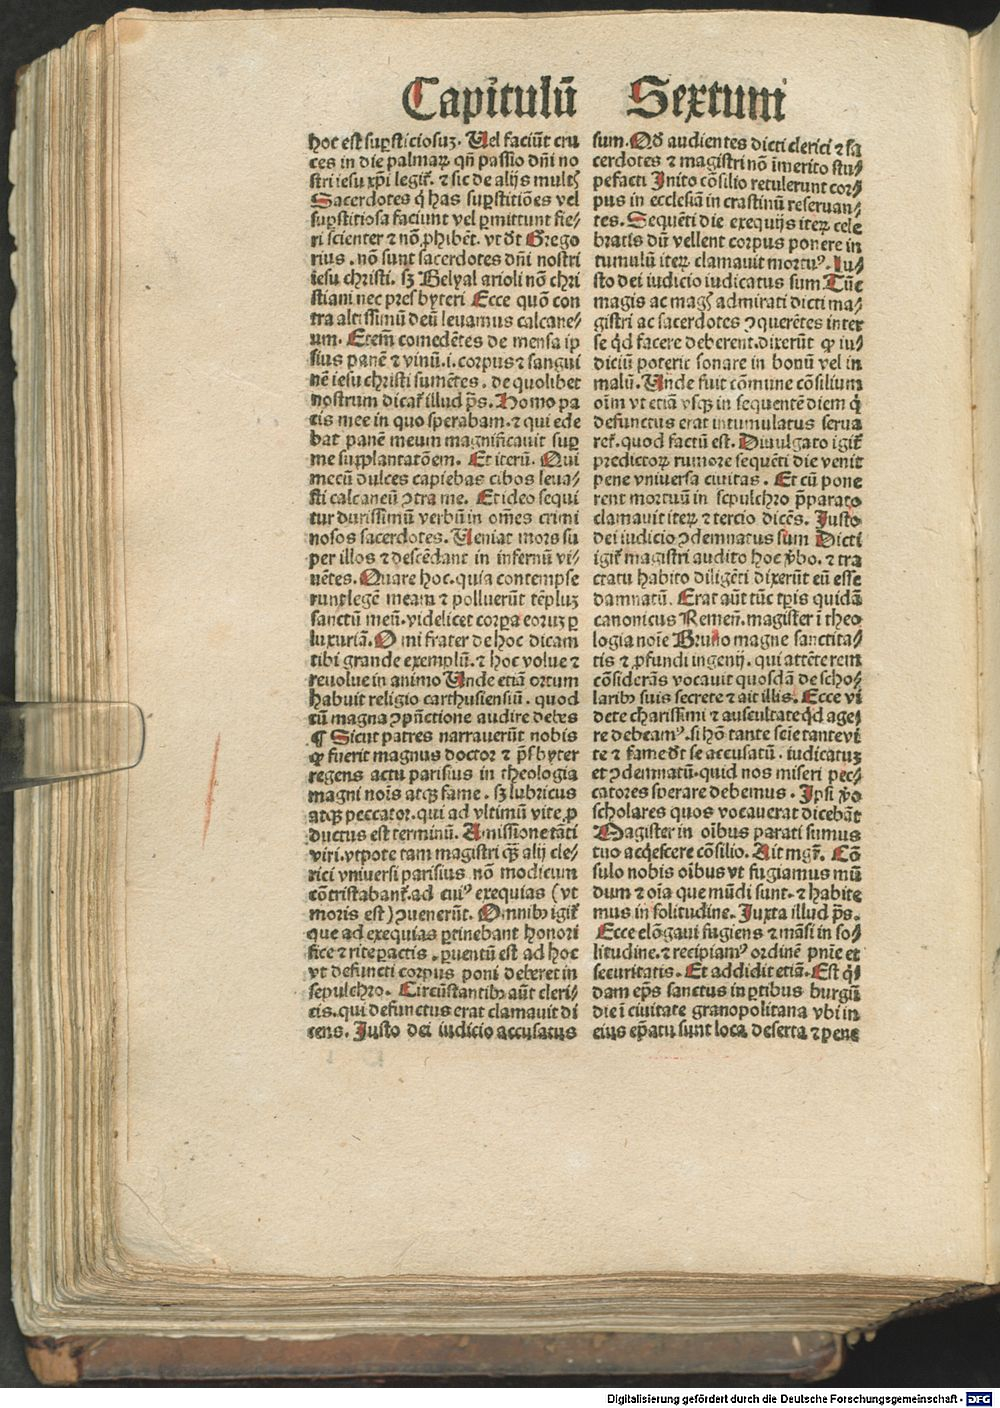 Capitulū Sextum
hoc est supersticiosuz. Uel faciūt cru
ces in die palmaꝝ qn̄ passio dn̄i no
stri iesu xp̄i legit̄. ⁊ sic de alijs multꝭ
Sacerdotes q̇ has suꝑstitiōes vel
suꝑstitiosa faciunt vel ꝑmittunt fie-
ri scienter ⁊ nō ꝓhibēt. vt dt̄ Grego
rius. nō sunt sacerdotes dn̄i nostri
iesu christi. sꝫ Belyal arioli nō chri
stiani nec presbyteri Ecce quō con
tra altissimū deū leuamus calcane-
um. Etem̄ comedētes de mensa ip
sius panē ⁊ vinū.i.corpus ⁊ sangui
nē iesu christi sumētes. de quolibet
nostrum dicat̄ illud p̄s. Homo pa
cis mee in quo sperabam. ⁊ qui ede
bat panē meum magnificauit suꝑ
me supplantatōem. Et iterū. Qui
mecū dulces capiebas cibos leua-
sti calcaneū ꝯtra me. Et ideo sequi
tur durissimū verbū in om̄es crimi
nosos sacerdotes. Ueniat mors su
per illos ⁊ descēdant in infernū vi-
uētes. Quare hoc. quia contempse
runt legē meam ⁊ polluerūt tēpluz
sanctū meū. videlicet corpa eoruz ꝑ
luxuriā. O mi frater de hoc dicam
tibi grande exemplū. ⁊ hoc volue ⁊
reuolue in animo Unde etiā ortum
habuit religio carthusiensiū. quod
cū magna ꝯpūctione audire debes
¶ Sicut patres narrauerūt nobis
ꝙ fuerit magnus doctor ⁊ p̄sbyter
regens actu parisius in theologia
magni nois̄ atqꝫ fame. sꝫ lubricus
atqꝫ peccator. qui ad vltimū vite ꝓ
ductus est terminū. Amissione tāti
viri. vtpote tam magistri qꝫ alij cle-
rici vniuersi parisius nō modicum
cōtristabant̄. ad cuiꝰ exequias (vt
moris est) ꝯuenerūt. Omnibꝫ igit̄
que ad exequias ꝑtinebant honori
fice ⁊ rite ꝑactis. ꝑuentū est ad hoc
vt defuncti corpus poni deberet in
sepulchro. Circūstantibꝫ aūt cleri-
cis. qui defunctus erat clamauit di
cens. Justo dei iudicio accusatus
sum. Qd̄ audientes dicti clerici ⁊ sa
cerdotes ⁊ magistri nō īmerito stu-
pefacti Inito cōsilio retulerunt cor-
pus in ecclesiā in crastinū reseruan-
tes. Sequēti die exequijs iteꝝ cele
bratis dū vellent corpus ponere in
tumulū iteꝝ clamauit mortuꝰ. Ju-
sto dei iudicio iudicatus sum Tūc
magis ac magꝭ admirati dicti ma-
gistri ac sacerdotes ꝯquerētes inter
se qd̄ facere deberent. dixerūt ꝙ iu-
diciū poterit sonare in bonū vel in
malū. Unde fuit cōmune cōsilium
oīm vt etiā vsqꝫ in sequentē diem q̇
defunctus erat intumulatus serua
ret̄. quod factū est. Diuulgato igit̄
predictoꝝ rumore sequēti die venit
pene vniuersa ciuitas. Et cū pone
rent mortuū in sepulchro p̄parato
clamauit iteꝝ ⁊ tercio dicēs. Justo
dei iudicio ꝯdemnatus sum Dicti
igit̄ magistri audito hoc v̄bo. ⁊ tra
ctatu habito diligēti dixerūt eū esse
damnatū. Erat aūt tūc tꝑis quidā
canonicus Remen̄. magister ī theo
logia noīe Bruno magne sanctita-
tis ⁊ ꝓfundi ingenij. qui attēte rem
cōsiderās vocauit quosdā de scho-
laribꝫ suis secrete ⁊ ait illis. Ecce vi
dete charissimi ⁊ auscultate qd̄ age-
re debeamꝰ. si hō tante scie tante vi
te ⁊ fame dt̄ se accusatū. iudicatuz
et ꝯdemnatū. quid nos miseri pec-
catores sperare debemus. Ipsi v̄o
scholares quos vocauerat dicebāt
Magister in oībus parati sumus
tuo acq̇escere cōsilio. Ait mgr̄. Cō
sulo nobis oībus vt fugiamus mū
dum ⁊ oīa que mūdi sunt. ⁊ habite
mus in solitudine. Juxta illud p̄s.
Ecce elōgaui fugiens ⁊ māsi in so-
litudine. ⁊ recipiamꝰ ordinē pn̄ie et
securitatis. Et addidit etiā. Est q̇-
dam ep̄s sanctus in ꝑtibus burgū
die ī ciuitate granopolitana vbi in
eius ep̄atu sunt loca deserta ⁊ pene
Digitalisierung gefördert durch die Deutsche Forschungsgemeinschaft - DFG